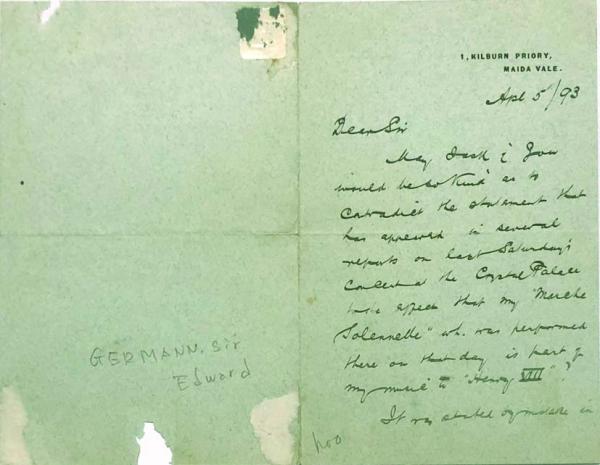 GERMANN. Sir
Edward
1, KILBURN PRIORY,
MAIDA VALE.
Apl 5th/93
Dear Sir
May I ask if you
would be so kind as to
contradict the statement that
has appeared in several
reports on last Saturday's
Concert at the Crystal Palace
to the effect that my "Marche
Solennelle" wh. was performed
there on that day is part of
my music to "Henry VIII"?
It was stated in